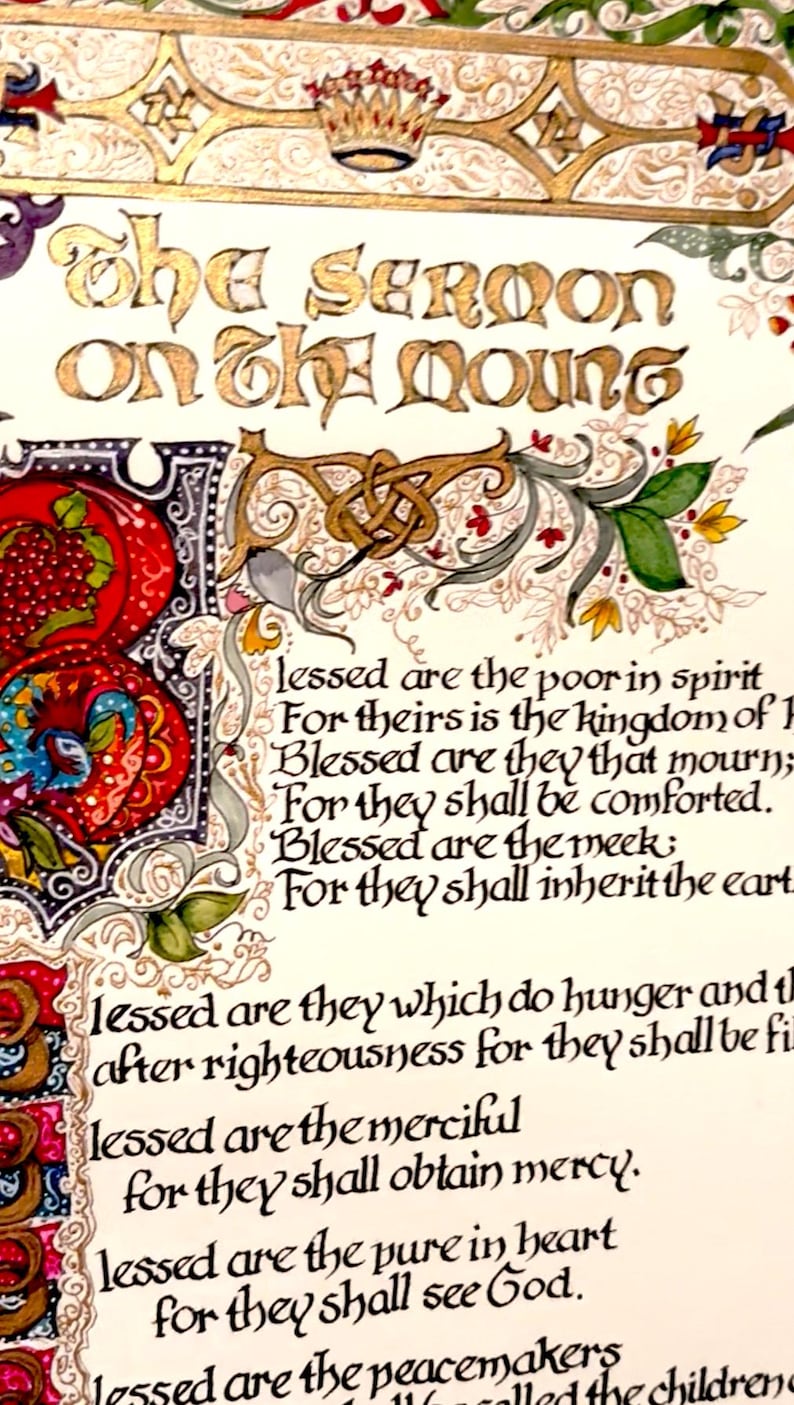 The Sermon
on The Mount
Blessed are the poor in spirit
For theirs is the kingdom of
Blessed are they that mourn;
For they shall be comforted.
Blessed are the meek;
For they shall inherit the eart
Blessed are they which do hunger and th
after righteousness for they shall be fil
Blessed are the merciful
for they shall obtain mercy.
Blessed are the pure in heart
for they shall see God.
Blessed are the peacemakers
called the children